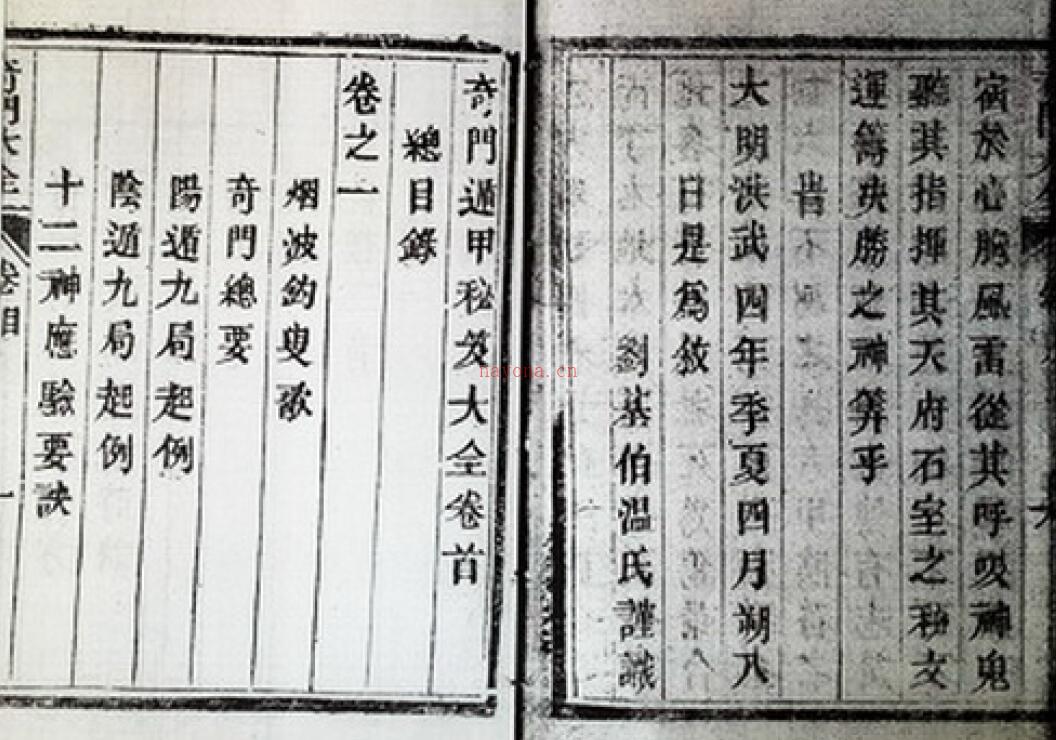 宿於心胸風雷從其呼吸神鬼
聽其指揮其天府石室之秘文
運籌决勝之神筭乎
旹
大明洪武四年季夏四月朔八
日是為敘
劉基伯温氏謹識
奇門遁甲秘笈大全卷首
總目錄
卷之一
烟波釣叟歌
奇門總要
陽遁九局起例
陰遁九局起例
十二神應驗要訣
nayona.cn